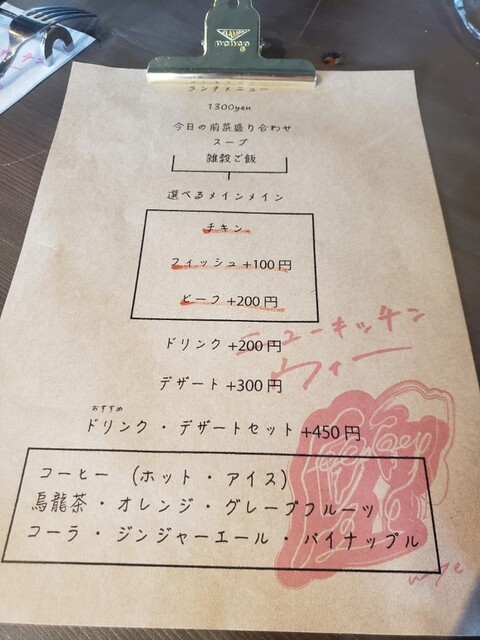 ランチメニュー
1300yen
今日の前菜盛り合わせ
スープ
雑穀ご飯
選べるメインメイン
チキン
フィッシュ +100円
ビーフ +200円
ドリンク +200円
ニューキッチン
ウィー
デザート +300円
おすすめ
ドリンク・デザートセット +450円
コーヒー (ホット・アイス)
烏龍茶・オレンジ・グレープフルーツ
コーラ・ジンジャーエール・パイナップル